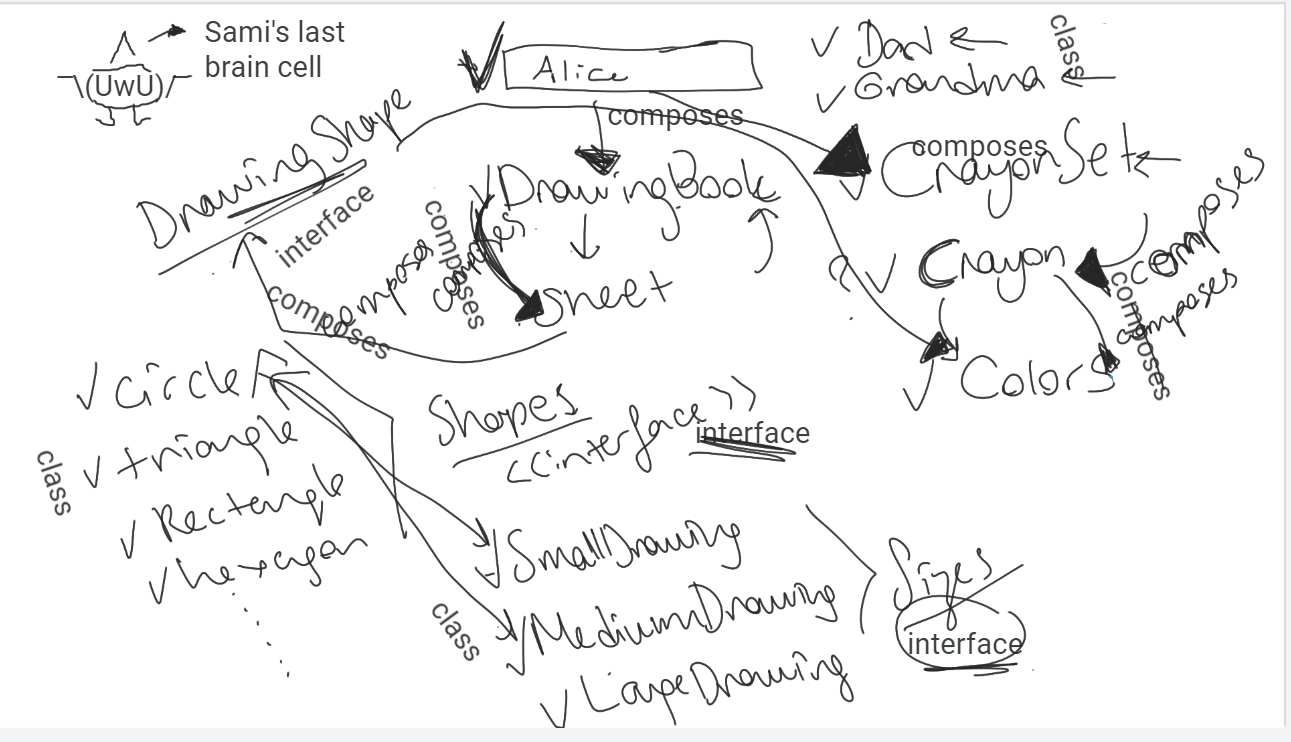 Sami's last
brain cell
\(UwU)/
Alice
Dad
Grandma
class
composes
DrawingShape
interface
DrawingBook
composes
CrayonSet
composes
composes
composes
Sheet
composes
composes
Crayon
composes
composes
composes
Colors
Circle
triangle
Rectangle
hexagon
class
Shapes
<<interface>>
interface
SmallDrawing
MediumDrawing
LargeDrawing
class
Sizes
interface